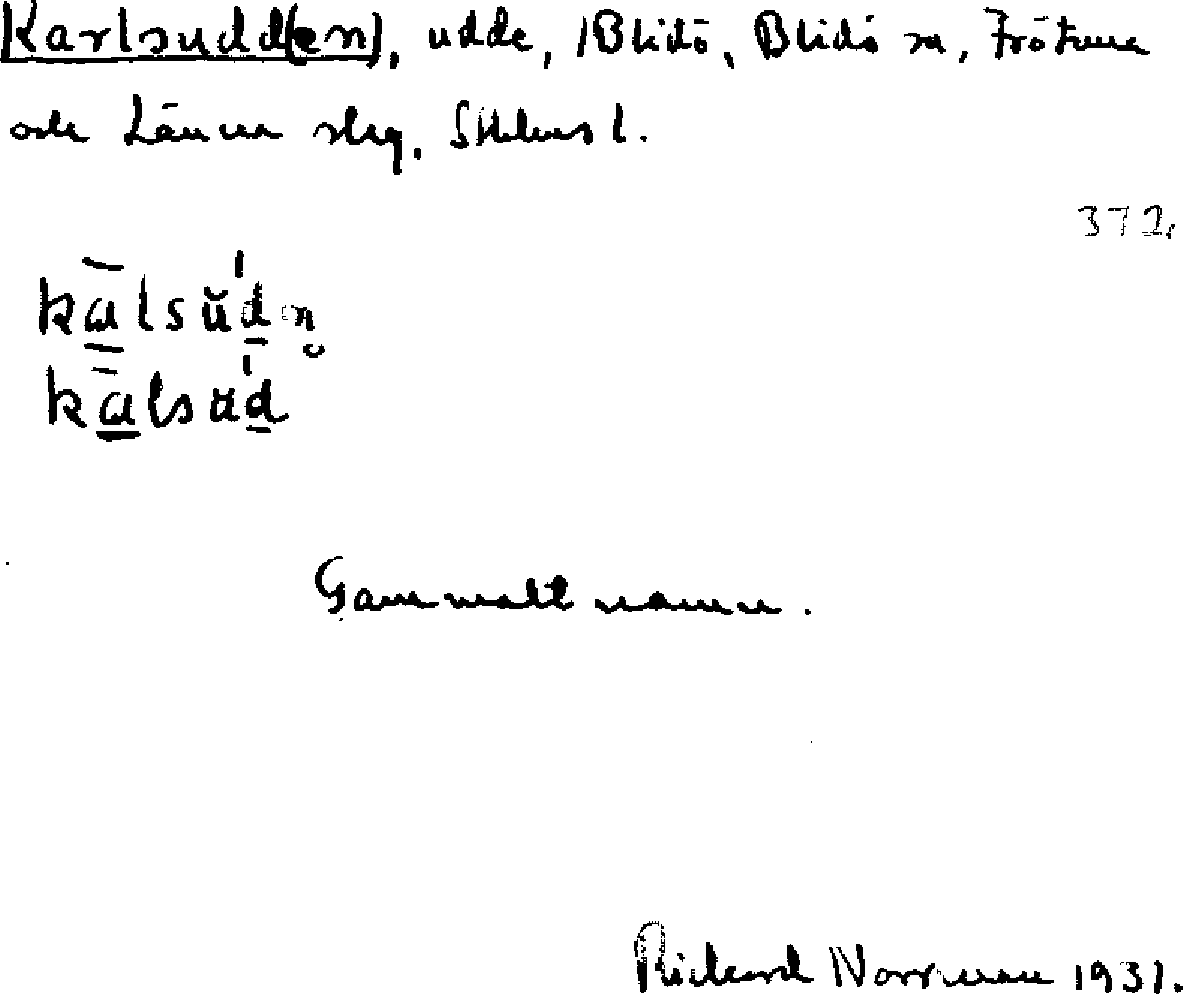 Karlsudd(en), udde, Blidö, Blidö sn, Frötuna
och Länna skg, Sthlms l.
372.
kālsŭdn̥
kālsud
Gammalt namn.
Rickard Norrman 1931.